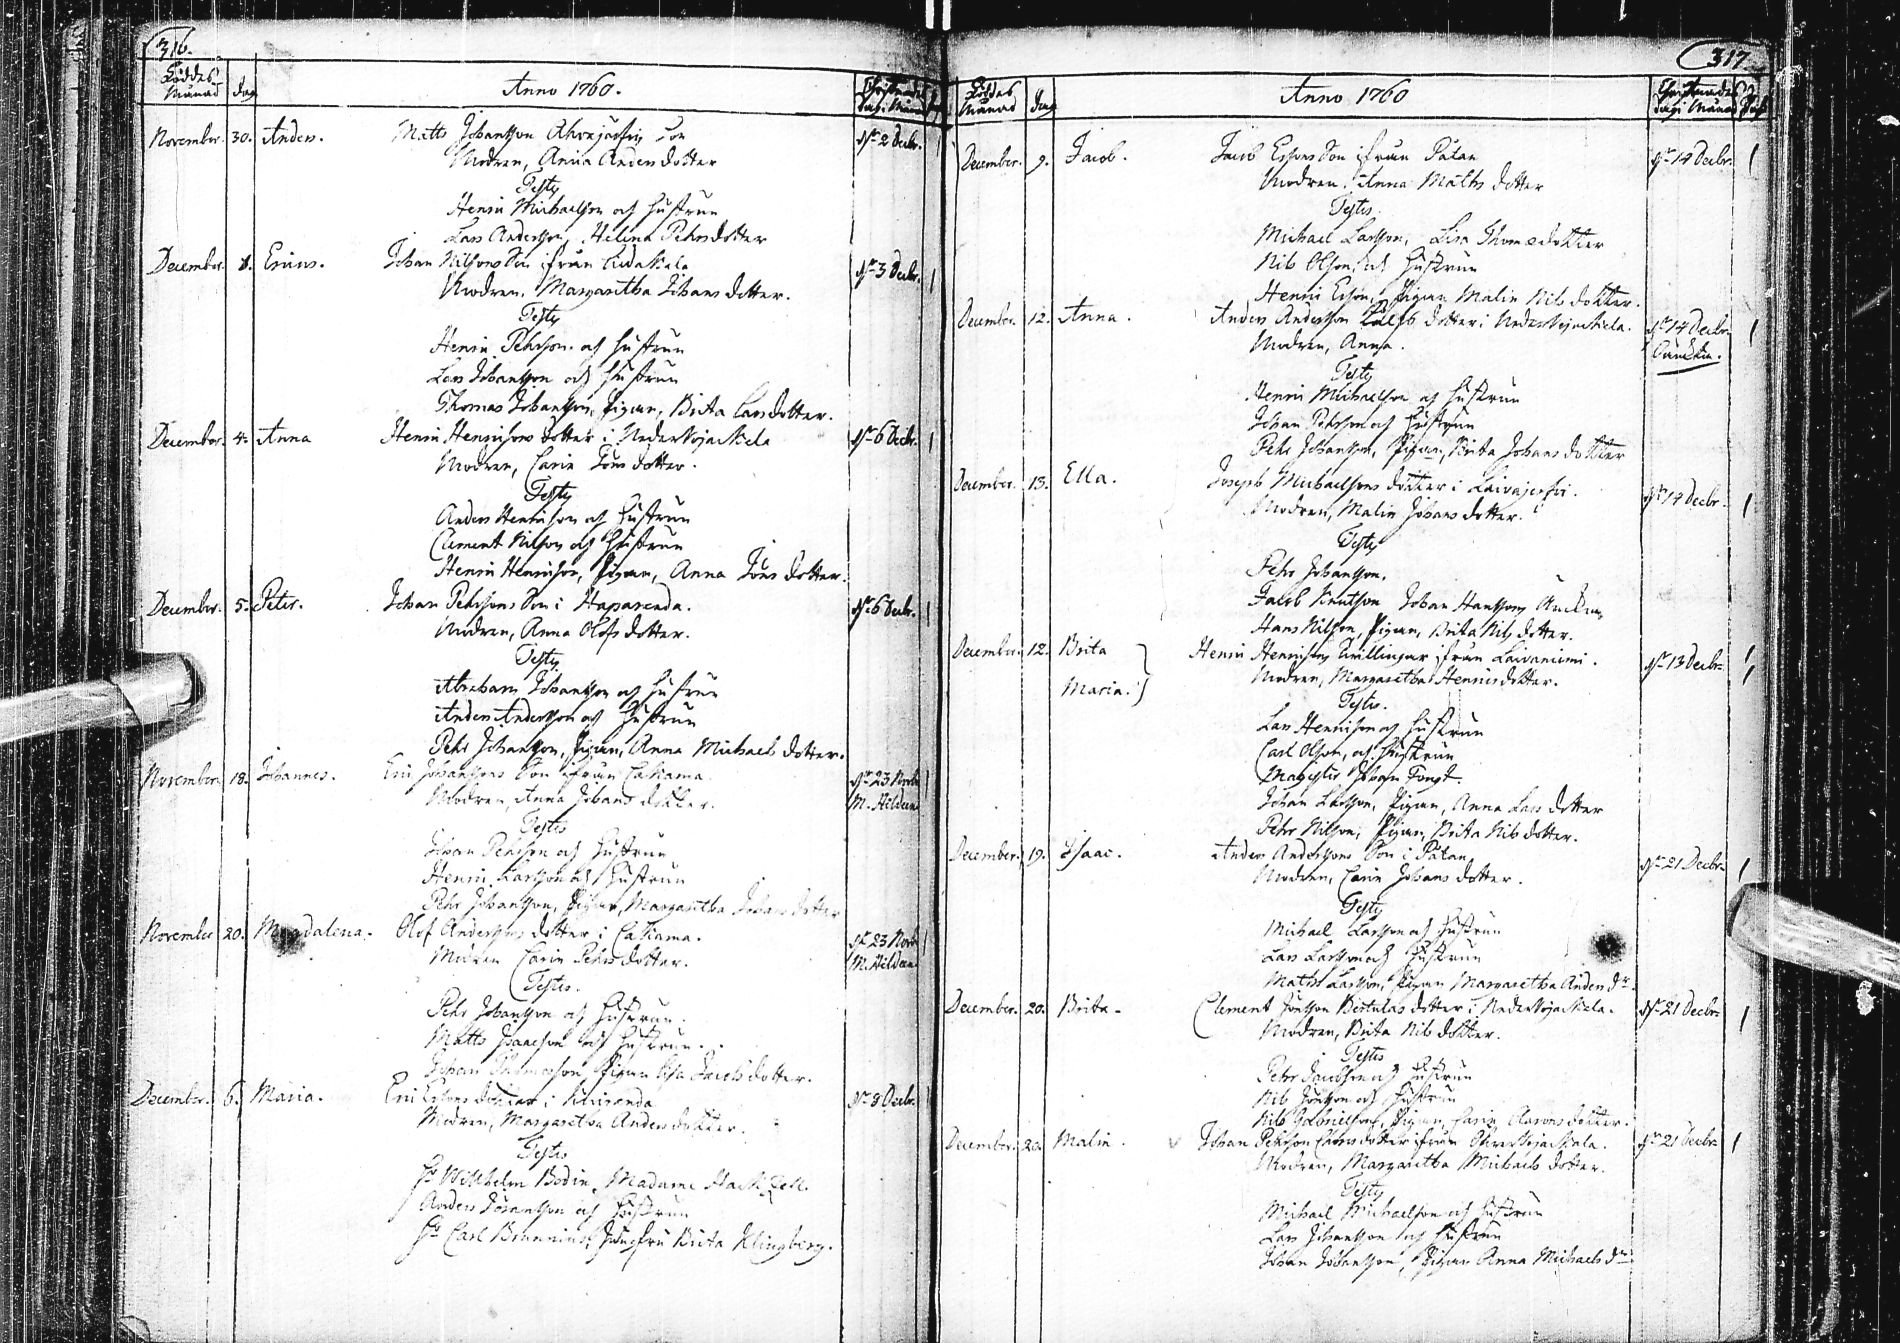 316.
Födde
Månad dag Anno 1760. Christnade
dag i Månad
November. 30. Anders. Matts Johansson son dn 2 Decbr.
Modren, Anna Anders dotter
Testes
Henric Michaelsson och hustrun
Lars Andersson, Helena Pehrsdotter
December. 1. Ericus. Johan Nilssons Son ifrån dn 3 Decbr.
Modren, Margaretha Johans dotter.
Testes
Henric Pehrsson och hustrun
Lars Johansson och hustrun
Thomas Johansson, Pigan, Brita Larsdotter.
December. 4. Anna Henric Henricsons dotter i Nedervojackala dn 6 Decbr.
Modren, Carin Jöns dotter.
Testes
Anders Henricson och hustrun
Clement Nilsson och hustrun
Henric Henricson, Pigan, Anna Jöns dotter.
December. 5. Peter. Johan Pehrssons Son i Haparanda. dn 6 Decbr.
Modren, Anna Olofs dotter.
Testes
Abraham Johansson och hustrun
Anders Andersson och hustrun
Pehr Johansson, Pigan, Anna Michaels dotter.
November. 18. Johannes. Eric Johanssons Son ifrån Calkama. dn 23 Novbr
Modren, Anna Johans dotter. M. Hildeen
Testes
Johan Persson och hustrun
Henric Larsson och hustrun
Pehr Johansson, Pigan, Margaretha Johans dotter
November 20. Magdalena. Olof Anderssons dotter i Calkama. dn 23 Novbr
Modren Carin Pehrs dotter. M. Hildeen
Testes.
Pehr Johansson och hustrun.
Matts Isaacson och hustrun.
Johan Thomasson, Pigan Lisa Jacobs dotter.
December. 6. Maria. Eric Erssons dotter i dn 8 Decbr.
Modren, Margaretha Anders dotter.
Testes
Hr Wilhelm Bodin, Madame Hackzell.
Anders Johansson och hustrun
Hr Carl Brunnius, Jungfru Brita Klingberg.
317
Födde
Månad dag Anno 1760 Christnade
dag i Månad
December. 9. Jacob. Jacob Erssons Son ifrån Påtan dn 14 Decbr.
Modren, Anna Matts dotter
Testes.
Michael Larsson, Lisa Thomædotter
Nils Olsson, och hustrun
Henric Ersson, Pigan Malin Nils dotter.
December. 12. Anna. Anders Andersson dotter i Nedervojackala. dn 14 Decbr.
Modren, Anna.
Testes
Henric Michaelsson och hustrun
Johan Pehrsson och hustrun
Pehr Johansson, Pigan, Brita Johans dotter
December. 13. Ella. Joseph Michaelssons dotter i Laivajerfvi. dn 14 Decbr.
Modren, Malin Johans dotter.
Testes
Pehr Johansson.
Jacob Knutsson Johan Hanssons
Hans Nilsson, Pigan, Brita Nils dotter.
December. 12. Brita Henric Henricsons tvillingar ifrån Laivaniemi. dn 13 Decbr.
Maria. Modren, Margaretha Henricsdotter.
Testes.
Lars Henricson och hustrun
Carl Olsson, och hustrun
Magister Johan Fougt.
Johan Larsson, Pigan, Anna Lars dotter
Pehr Nilsson, Pigan, Brita Nils dotter.
December. 19. Isaac. Anders Anderssons Son i Påtan dn 21 Decbr.
Modren, Carin Johans dotter.
Testes
Michael Larsson och hustrun
Lars Larsson och hustrun
Matts Larsson, Pigan Margaretha Anders dr.
December. 20. Brita. Clement Jonsson dotter i Nedervojackala. dn 21 Decbr.
Modren, Brita Nils dotter.
Testes
Pehr Jacobsson och hustrun
Nils Jonsson och hustrun
Nils Gabrielsson, Pigan Carin Aarons dotter.
December. 20. Malin. Johan Pehrsson dotter ifrån Öfvervojackala. dn 21 Decbr.
Modren, Margaretha Michaels dotter.
Testes
Michael Michaelsson och hustrun
Lars Johansson och hustrun
Johan Johansson, Pigan Anna Michaels dr.